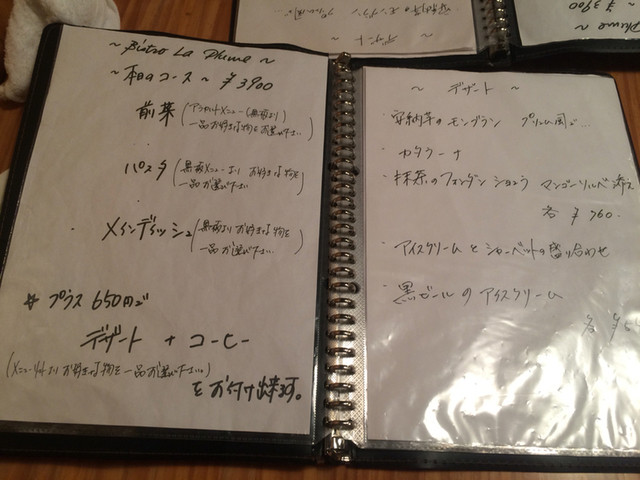 ~ Bistro La Plume ~
~ 本日のコース ~ ¥3900
前菜 (アラカルトメニュー(黒板より)
一品お好きな物をお選び下さい)
・パスタ (黒板メニューより お好きな物を
一品お選び下さい)
・メインディッシュ (黒板より お好きな物を
一品お選び下さい)
☆ プラス 650円で
デザート + コーヒー
(メニューよりお好きな物を一品お選び下さい。)
をお付け出来ます。
~ デザート ~
・安納芋のモンブラン プリン風で…
・カタラーナ
・抹茶のフォンダンショコラ マンゴーソルベ添え
各 ¥760.
・アイスクリームとシャーベットの盛り合わせ
・黒ビールのアイスクリーム
各 ¥
~ デザート ~
¥3900